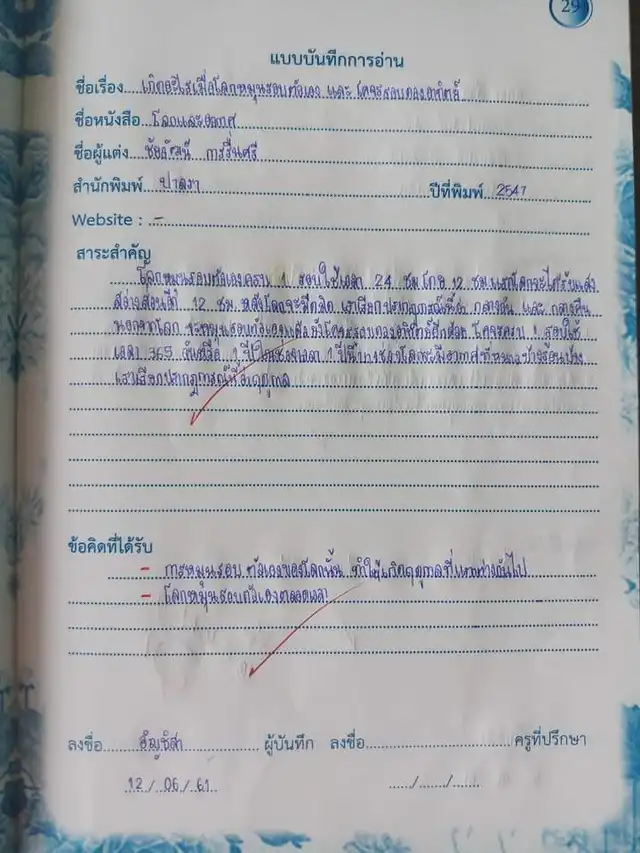 29
แบบบันทึกการอ่าน
ชื่อเรื่อง เกิดอะไรเมื่อโลกหมุนรอบตัวเอง และ โคจรรอบดวงอาทิตย์
ชื่อหนังสือ โลกและอวกาศ
ชื่อผู้แต่ง ชัยวัฒน์ การรื่นศรี
สำนักพิมพ์ ปาเจรา ปีที่พิมพ์ 2547
Website : -
สาระสำคัญ
โลกหมุนรอบตัวเองครบ 1 รอบใช้เวลา 24 ชม โดย 12 ชม. แรกโลกจะได้รับแสง
สว่างส่วนอีก 12 ชม. หลังโลกจะมืดมิด เราเรียกปรากฏการณ์นี้ว่า กลางวัน และ กลางคืน
นอกจากโลก จะหมุนรอบตัวเองแล้วยังโคจรรอบดวงอาทิตย์อีกด้วย โคจรครบ 1 รอบใช้
เวลา 365 วันหรือ 1 ปี ในช่วงเวลา 1 ปีนี้บางช่วงโลกจะมีอากาศที่หนาวบ้างร้อนบ้าง
เราเรียกปรากฏการณ์นี้ว่าฤดูกาล
ข้อคิดที่ได้รับ
- การหมุนรอบ ตัวเองของโลกนั้น ทำให้เกิดฤดูกาลที่แตกต่างกันไป
- โลกหมุนรอบตัวเองตลอดเวลา
ลงชื่อ ธัญชิสา ผู้บันทึก ลงชื่อ ครูที่ปรึกษา
12 / 06 / 61 / /